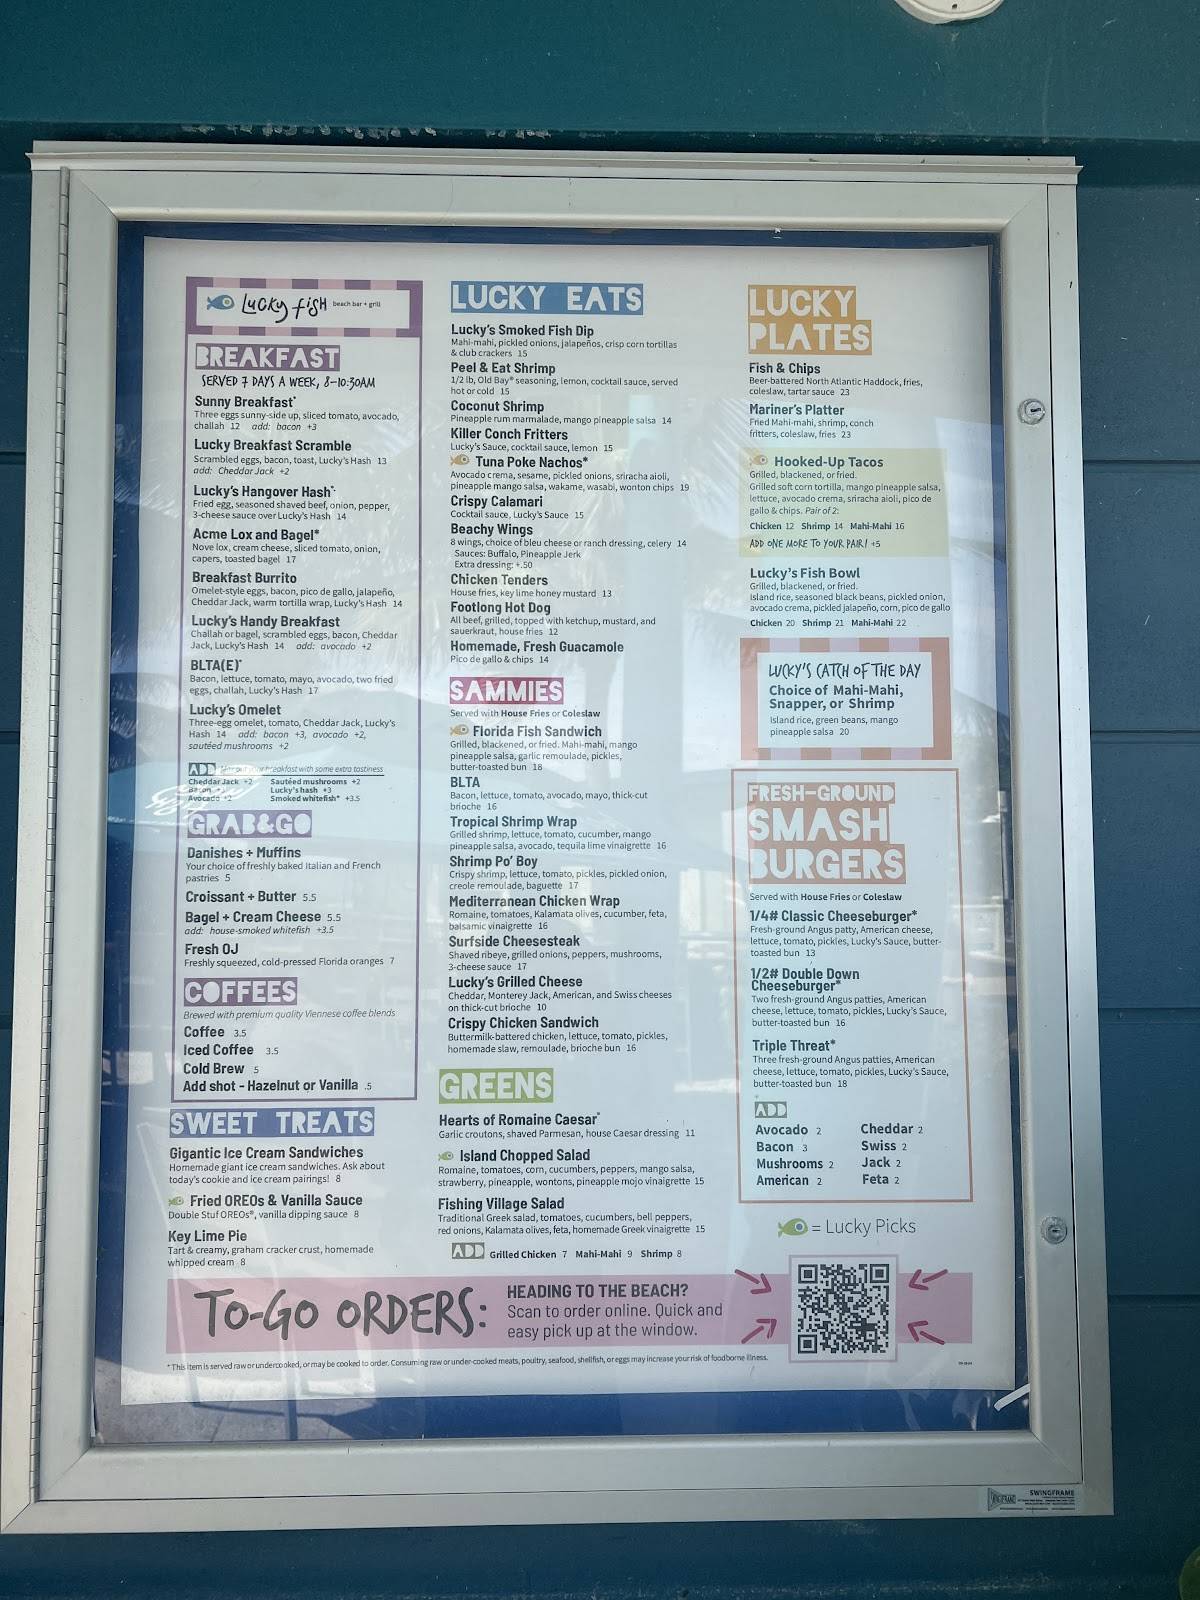 Lucky fish beach bar + grill
BREAKFAST
SERVED 7 DAYS A WEEK, 8-10:30AM
Sunny Breakfast*
Three eggs sunny-side up, sliced tomato, avocado,
challah 12 add: bacon +3
Lucky Breakfast Scramble
Scrambled eggs, bacon, toast, Lucky's Hash 13
add: Cheddar Jack +2
Lucky's Hangover Hash*
Fried egg, seasoned shaved beef, onion, pepper,
3-cheese sauce over Lucky's Hash 14
Acme Lox and Bagel*
Nove lox, cream cheese, sliced tomato, onion,
capers, toasted bagel 17
Breakfast Burrito
Omelet-style eggs, bacon, pico de gallo, jalapeño,
Cheddar Jack, warm tortilla wrap, Lucky's Hash 14
Lucky's Handy Breakfast
Challah or bagel, scrambled eggs, bacon, Cheddar
Jack, Lucky's Hash 14 add: avocado +2
BLTA(E)*
Bacon, lettuce, tomato, mayo, avocado, two fried
eggs, challah, Lucky's Hash 17
Lucky's Omelet
Three-egg omelet, tomato, Cheddar Jack, Lucky's
Hash 14 add: bacon +3, avocado +2,
sautéed mushrooms +2
ADD your breakfast with some extra tastiness
Cheddar Jack +2 Sautéed mushrooms +2
Bacon Lucky's hash +3
Avocado +2 Smoked whitefish* +3.5
GRAB&GO
Danishes + Muffins
Your choice of freshly baked Italian and French
pastries 5
Croissant + Butter 5.5
Bagel + Cream Cheese 5.5
add: house-smoked whitefish +3.5
Fresh OJ
Freshly squeezed, cold-pressed Florida oranges 7
COFFEES
Brewed with premium quality Viennese coffee blends
Coffee 3.5
Iced Coffee 3.5
Cold Brew 5
Add shot - Hazelnut or Vanilla .5
SWEET TREATS
Gigantic Ice Cream Sandwiches
Homemade giant ice cream sandwiches. Ask about
today's cookie and ice cream pairings! 8
Fried OREOs & Vanilla Sauce
Double Stuf OREOs®, vanilla dipping sauce 8
Key Lime Pie
Tart & creamy, graham cracker crust, homemade
whipped cream 8
LUCKY EATS
Lucky's Smoked Fish Dip
Mahi-mahi, pickled onions, jalapeños, crisp corn tortillas
& club crackers 15
Peel & Eat Shrimp
1/2 lb, Old Bay® seasoning, lemon, cocktail sauce, served
hot or cold 15
Coconut Shrimp
Pineapple rum marmalade, mango pineapple salsa 14
Killer Conch Fritters
Lucky's Sauce, cocktail sauce, lemon 15
Tuna Poke Nachos*
Avocado crema, sesame, pickled onions, sriracha aioli,
pineapple mango salsa, wakame, wasabi, wonton chips 19
Crispy Calamari
Cocktail sauce, Lucky's Sauce 15
Beachy Wings
8 wings, choice of bleu cheese or ranch dressing, celery 14
Sauces: Buffalo, Pineapple Jerk
Extra dressing: +.50
Chicken Tenders
House fries, key lime honey mustard 13
Footlong Hot Dog
All beef, grilled, topped with ketchup, mustard, and
sauerkraut, house fries 12
Homemade, Fresh Guacamole
Pico de gallo & chips 14
SAMMIES
Served with House Fries or Coleslaw
Florida Fish Sandwich
Grilled, blackened, or fried. Mahi-mahi, mango
pineapple salsa, garlic remoulade, pickles,
butter-toasted bun 18
BLTA
Bacon, lettuce, tomato, avocado, mayo, thick-cut
brioche 16
Tropical Shrimp Wrap
Grilled shrimp, lettuce, tomato, cucumber, mango
pineapple salsa, avocado, tequila lime vinaigrette 16
Shrimp Po' Boy
Crispy shrimp, lettuce, tomato, pickles, pickled onion,
creole remoulade, baguette 17
Mediterranean Chicken Wrap
Romaine, tomatoes, Kalamata olives, cucumber, feta,
balsamic vinaigrette 16
Surfside Cheesesteak
Shaved ribeye, grilled onions, peppers, mushrooms,
3-cheese sauce 17
Lucky's Grilled Cheese
Cheddar, Monterey Jack, American, and Swiss cheeses
on thick-cut brioche 10
Crispy Chicken Sandwich
Buttermilk-battered chicken, lettuce, tomato, pickles,
homemade slaw, remoulade, brioche bun 16
GREENS
Hearts of Romaine Caesar*
Garlic croutons, shaved Parmesan, house Caesar dressing 11
Island Chopped Salad
Romaine, tomatoes, corn, cucumbers, peppers, mango salsa,
strawberry, pineapple, wontons, pineapple mojo vinaigrette 15
Fishing Village Salad
Traditional Greek salad, tomatoes, cucumbers, bell peppers,
red onions, Kalamata olives, feta, homemade Greek vinaigrette 15
ADD Grilled Chicken 7 Mahi-Mahi 9 Shrimp 8
LUCKY
PLATES
Fish & Chips
Beer-battered North Atlantic Haddock, fries,
coleslaw, tartar sauce 23
Mariner's Platter
Fried Mahi-mahi, shrimp, conch
fritters, coleslaw, fries 23
Hooked-Up Tacos
Grilled, blackened, or fried.
Grilled soft corn tortilla, mango pineapple salsa,
lettuce, avocado crema, sriracha aioli, pico de
gallo & chips. Pair of 2:
Chicken 12 Shrimp 14 Mahi-Mahi 16
ADD ONE MORE TO YOUR PAIR! +5
Lucky's Fish Bowl
Grilled, blackened, or fried.
Island rice, seasoned black beans, pickled onion,
avocado crema, pickled jalapeño, corn, pico de gallo
Chicken 20 Shrimp 21 Mahi-Mahi 22
LUCKY'S CATCH OF THE DAY
Choice of Mahi-Mahi,
Snapper, or Shrimp
Island rice, green beans, mango
pineapple salsa 20
FRESH-GROUND
SMASH
BURGERS
Served with House Fries or Coleslaw
1/4# Classic Cheeseburger*
Fresh-ground Angus patty, American cheese,
lettuce, tomato, pickles, Lucky's Sauce, butter-
toasted bun 13
1/2# Double Down
Cheeseburger*
Two fresh-ground Angus patties, American
cheese, lettuce, tomato, pickles, Lucky's Sauce,
butter-toasted bun 16
Triple Threat*
Three fresh-ground Angus patties, American
cheese, lettuce, tomato, pickles, Lucky's Sauce,
butter-toasted bun 18
ADD
Avocado 2 Cheddar 2
Bacon 3 Swiss 2
Mushrooms 2 Jack 2
American 2 Feta 2
= Lucky Picks
TO-GO ORDERS:
HEADING TO THE BEACH?
Scan to order online. Quick and
easy pick up at the window.
*This item is served raw or undercooked, or may be cooked to order. Consuming raw or under-cooked meats, poultry, seafood, shellfish, or eggs may increase your risk of foodborne illness.
SWINGFRAME